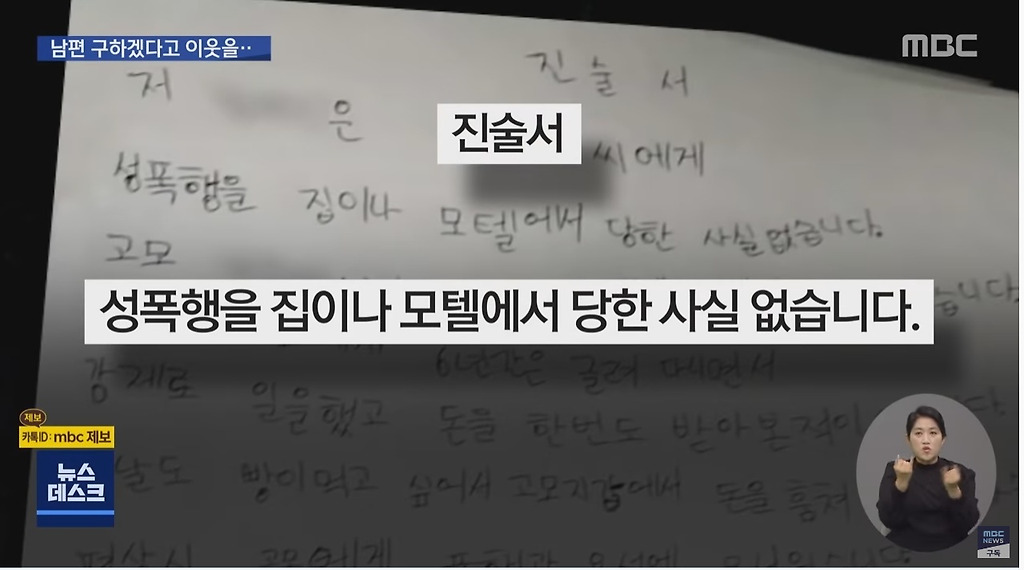 남편 구하겠다고 이웃을‥
MBC
진 술 서
저
은
진술서
씨에게
성폭행을 집이나 모텔에서 당한 사실 없습니다.
고모
성폭행을 집이나 모텔에서 당한 사실 없습니다.
습니다
6년간은 끌려 다니면서
강제로 일을했고 돈을 한번도 받아본적이
날도 빵이먹고 싶어서 고모지갑에서 돈을 훔쳐
평상시
제보
카톡ID: mbc 제보
뉴스
데스크
MBC
NEWS
구독